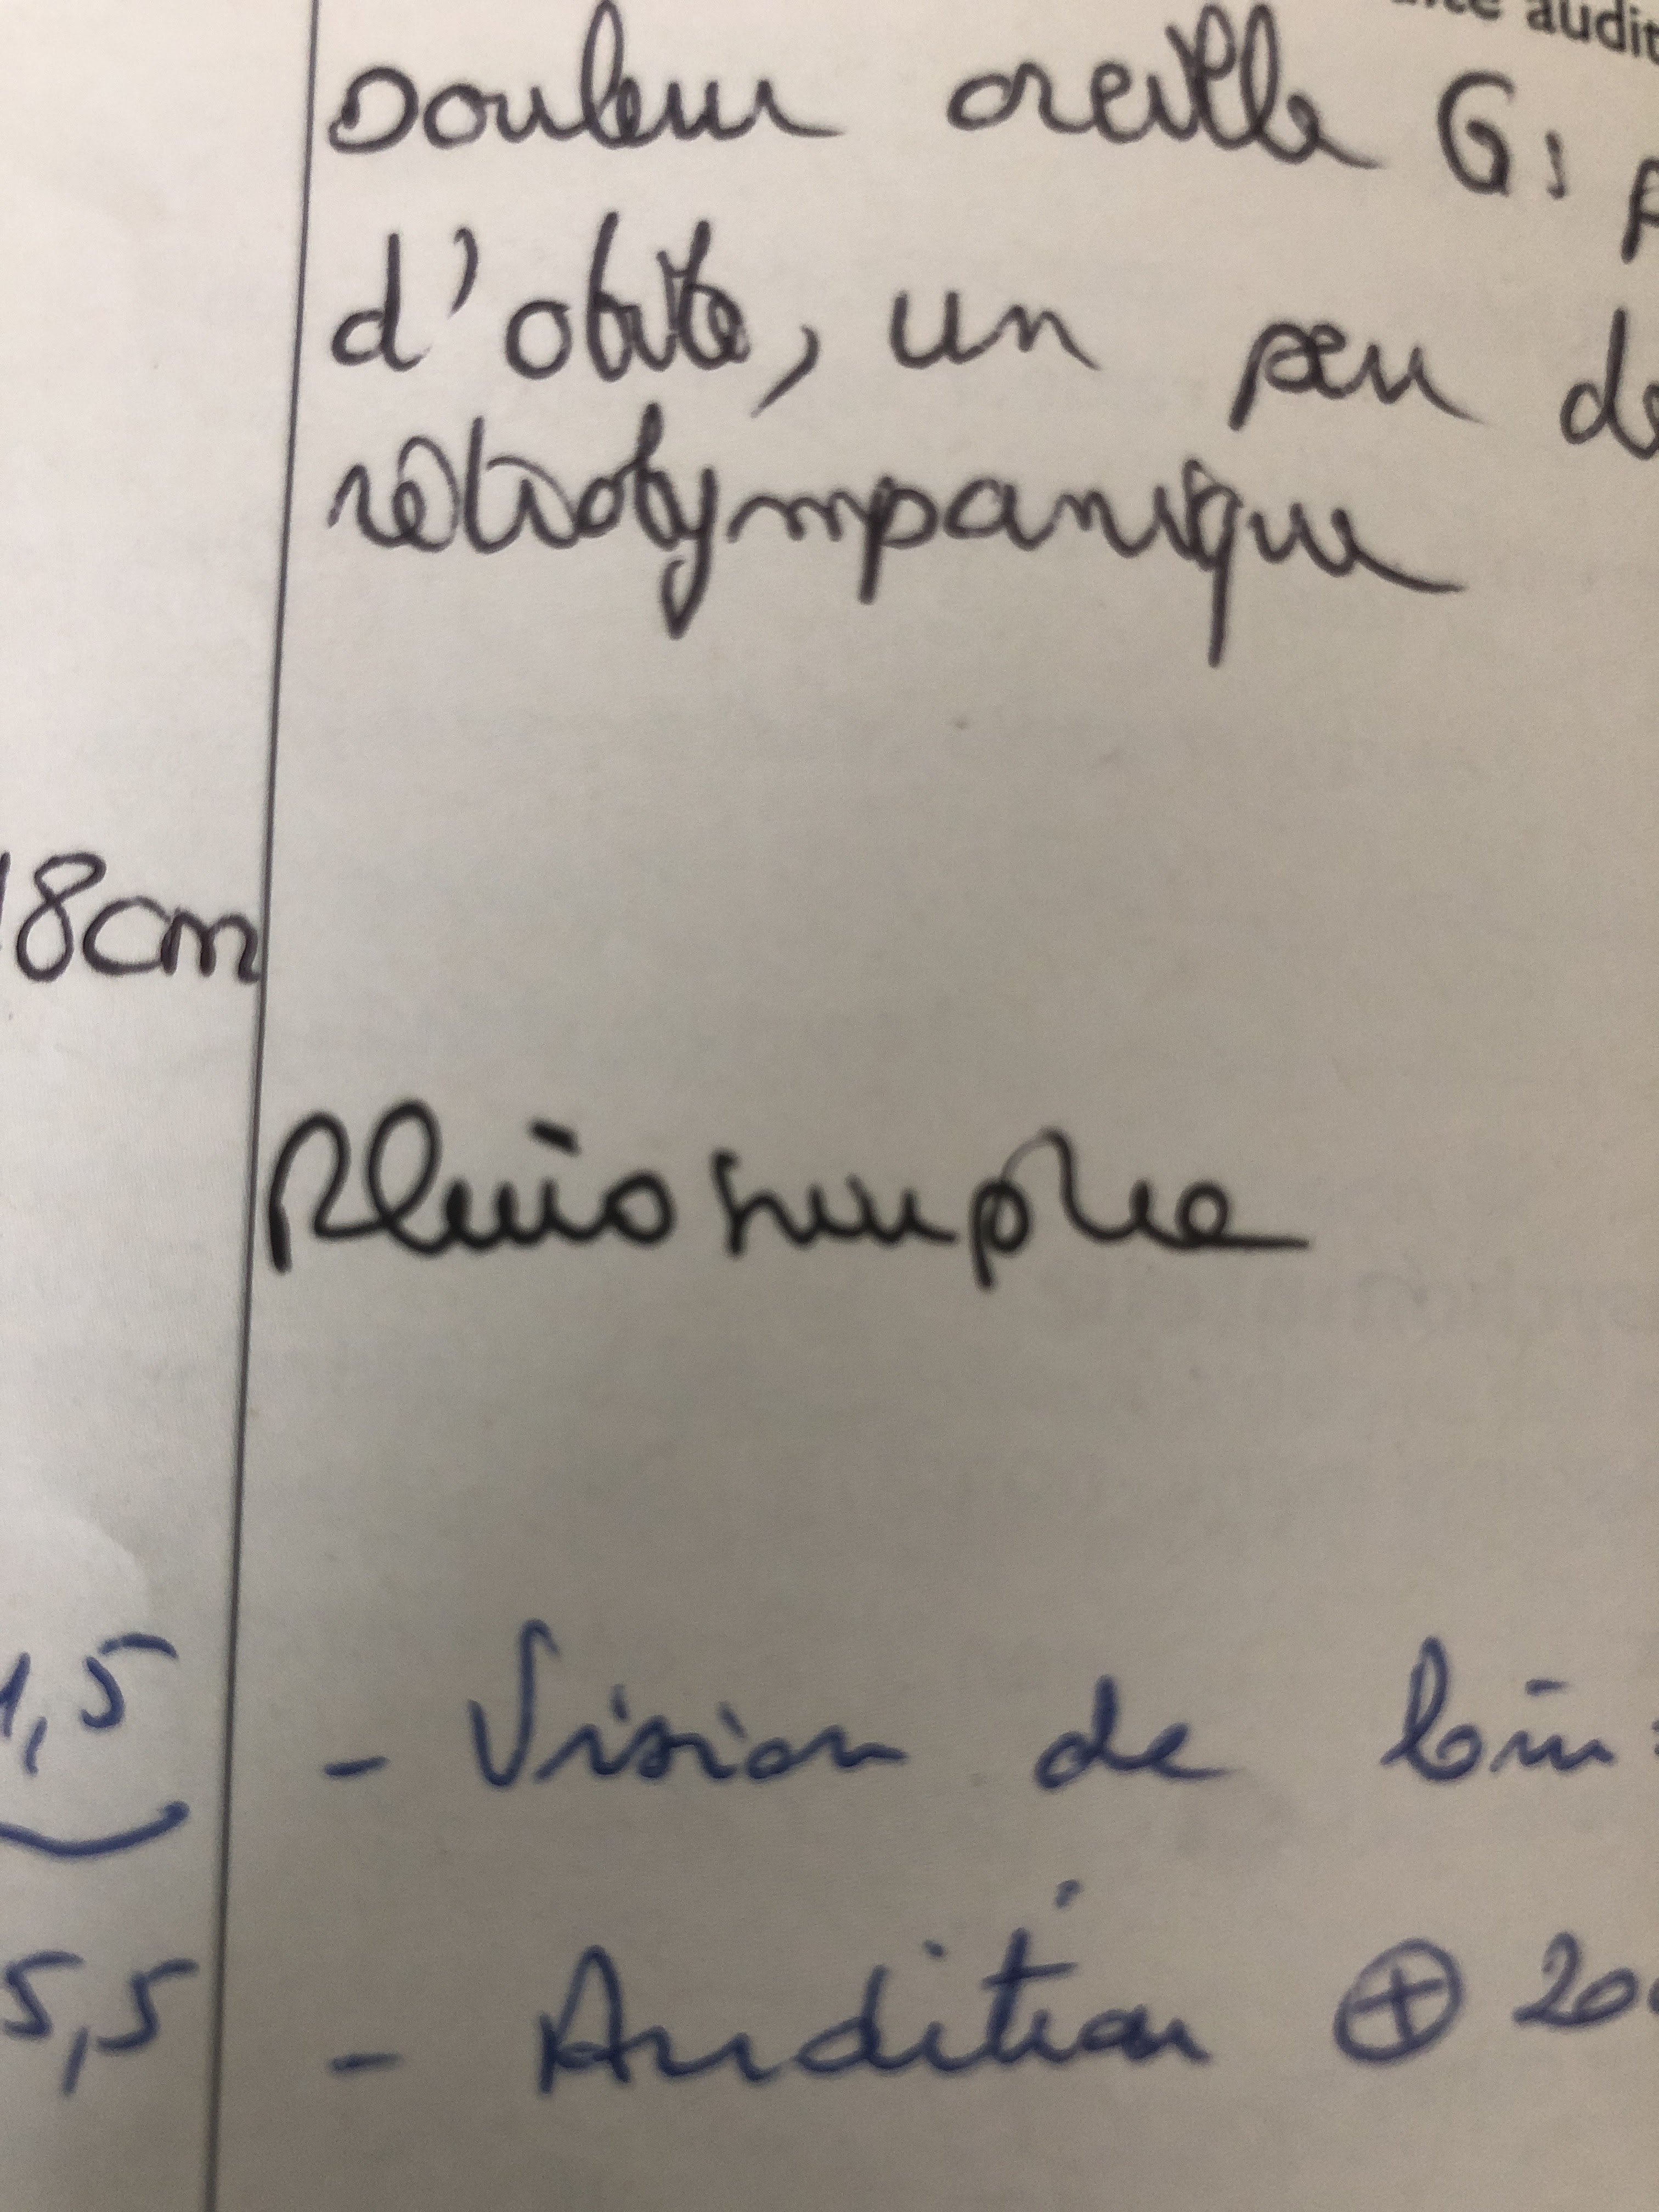 audit
Douleur oreille G :
d'otite, un peu de
rétrotympanique
18cm
Rhino simple
1,5 - Vision de loin :
5,5 - Audition ⊕ 20